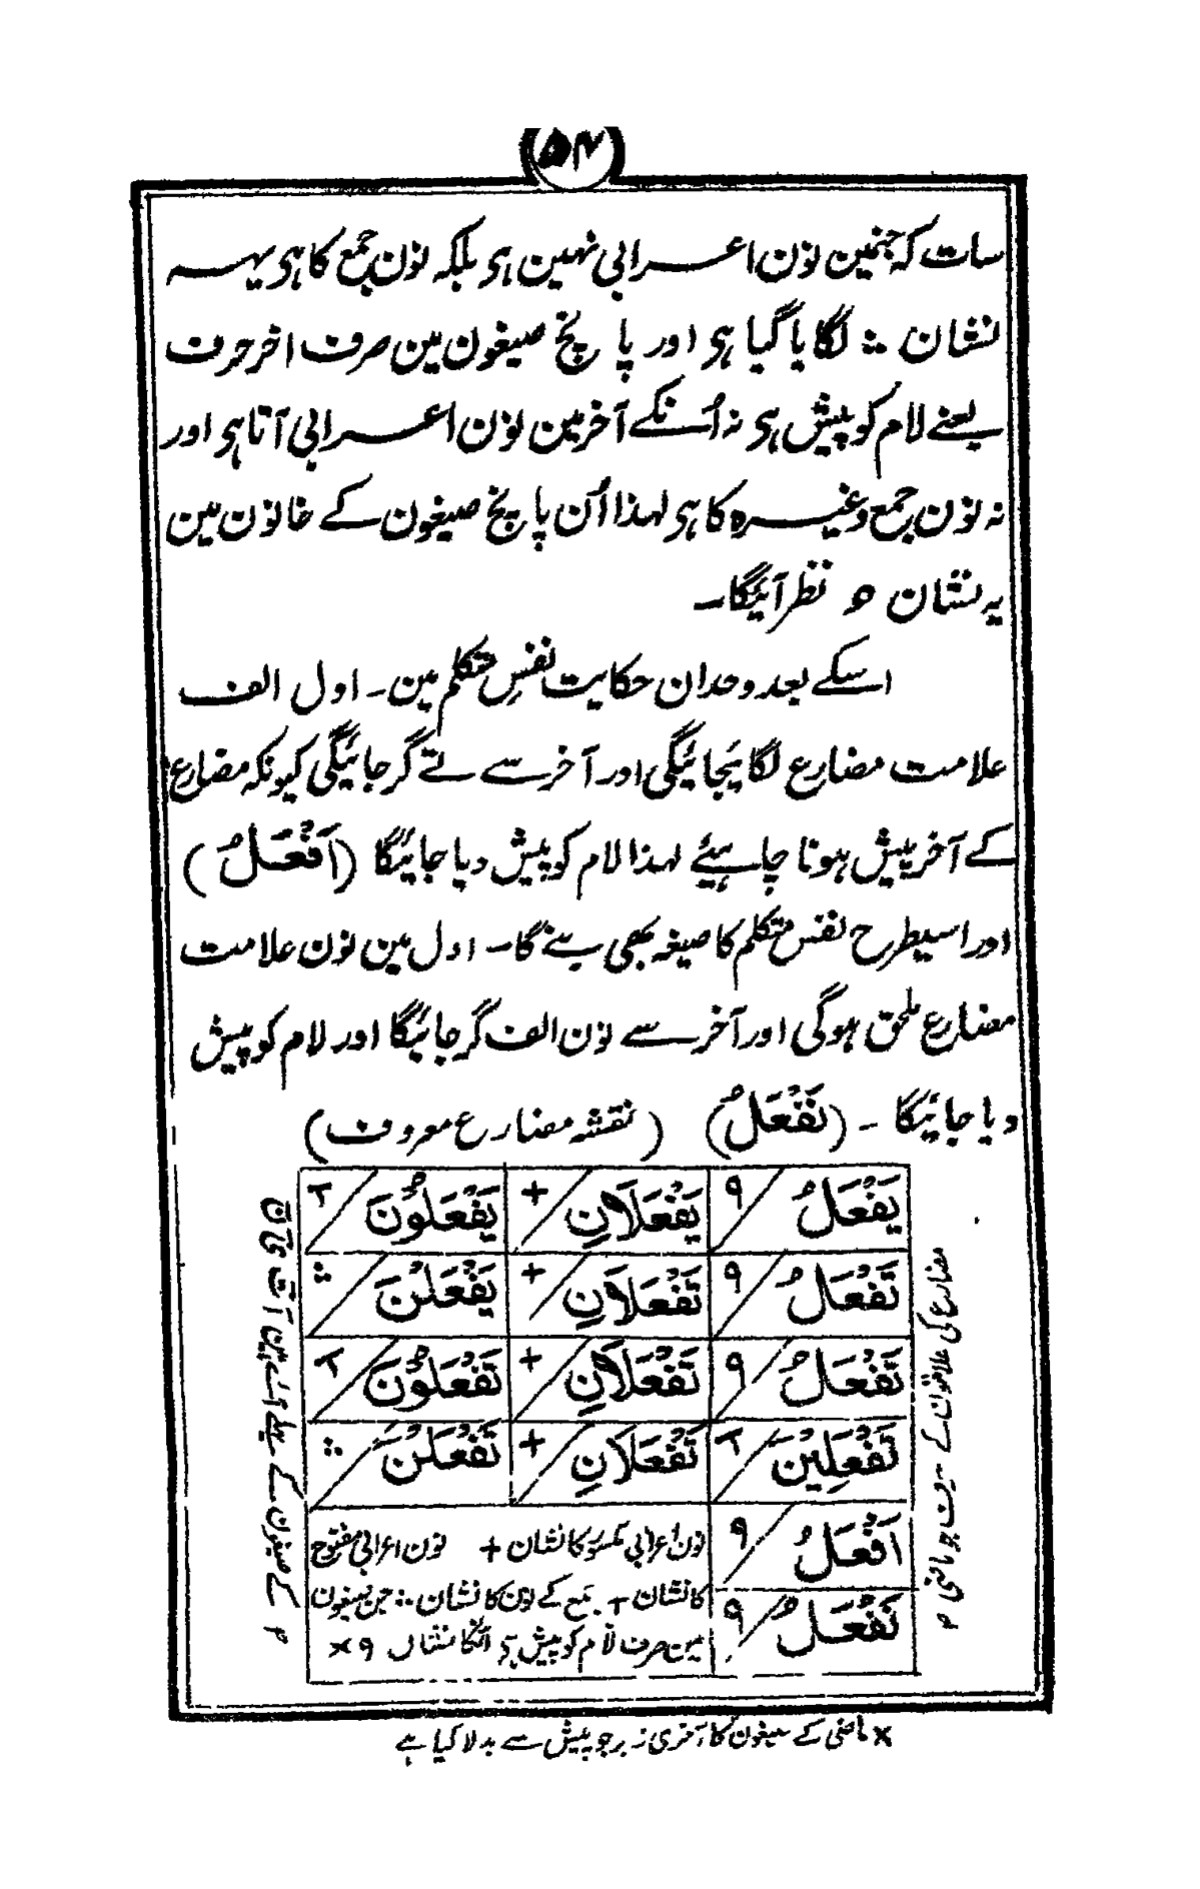 ۵۴
سات کہ جنمین نون اعرابی نہین ہی بلکہ نون جمع کا ہی یہہ
نشان ؞ لگایا گیا ہی اور پانچ صیغون مین صرف اخر حرف
یعنے لام کو پیش ہی نہ اُنکے آخر مین نون اعرابی آتا ہی اور
نہ نون جمع وغیرہ کا ہی لہذا اُن پانچ صیغون کے خانون مین
یہ نشان ٥ نظر آئیگا۔
اسکے بعد وحدان حکایت نفسِ متکلم مین۔ اول الف
علامت مضارع لگائیجائیگی اور آخر سے تے گر جائیگی کیونکہ مضارع
کے آخر پیش ہونا چاہیئے لہذا لام کو پیش دیا جائیگا (اَفْعَلُ)
اور اسیطرح نفس متکلم کا صیغہ بھی بنے گا۔ اول مین نون علامت
مضارع ملحق ہوگی اور آخر سے نون الف گر جائیگا اور لام کو پیش
دیا جائیگا ۔ (نَفْعَلُ) (نقشہ مضارع معروف)
یَفْعَلُ ۹ یَفْعَلَانِ + یَفْعَلُوْنَ ۲
تَفْعَلُ ۹ تَفْعَلَانِ + یَفْعَلْنَ ؞
تَفْعَلُ ۹ تَفْعَلَانِ + تَفْعَلُوْنَ ۲
تَفْعَلِیْنَ ۲ تَفْعَلَانِ + تَفْعَلْنَ ؞
اَفْعَلُ ۹
نَفْعَلُ ۹
نون اعرابی مکسور کا نشان + نون اعرابی مفتوح
کا نشان + جمع کے نون کا نشان ؞ جن صیغون
مین صرف لام کو پیش ہی انکا نشان ۹ ×
مضارع کی علامتون کے حرف جو ماضی ۲
۲ کے صیغون کے پہلے آتے ہین
× ماضی کے صیغون کا آخری زبر جو پیش سے بدلا گیا ہے